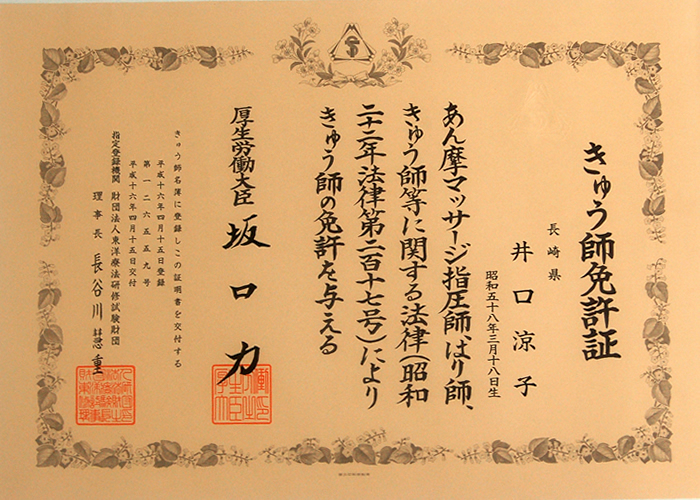 きゅう師免許証
長崎県
井口涼子
昭和五十八年三月十八日生
あん摩マッサージ指圧師、はり師、
きゅう師等に関する法律(昭和
二十二年法律第二百十七号)により
きゅう師の免許を与える
厚生労働大臣 坂口力
きゅう師名簿に登録しこの証明書を交付する
平成十六年四月十五日登録
第一二六五五九号
平成十六年四月十五日交付
指定登録機関 財団法人東洋療法研修試験財団
理事長 長谷川慧重